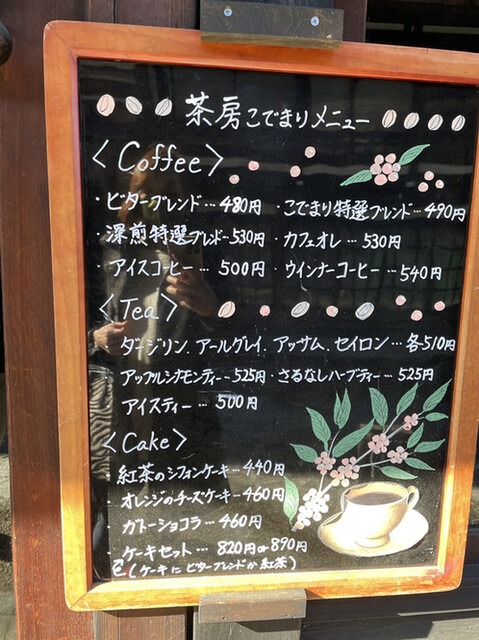 茶房こでまりメニュー
<Coffee>
・ビターブレンド…480円 ・こでまり特選ブレンド…490円
・深煎特選ブレンド…530円 ・カフェオレ…530円
・アイスコーヒー…500円 ・ウインナーコーヒー…540円
<Tea>
・ダージリン、アールグレイ、アッサム、セイロン…各510円
・アップルシナモンティー…525円 ・さるなしハーブティー…525円
・アイスティー…500円
<Cake>
・紅茶のシフォンケーキ…440円
・オレンジのチーズケーキ…460円
・ガトーショコラ…460円
・ケーキセット…820円or890円
(ケーキにビターブレンドか紅茶)